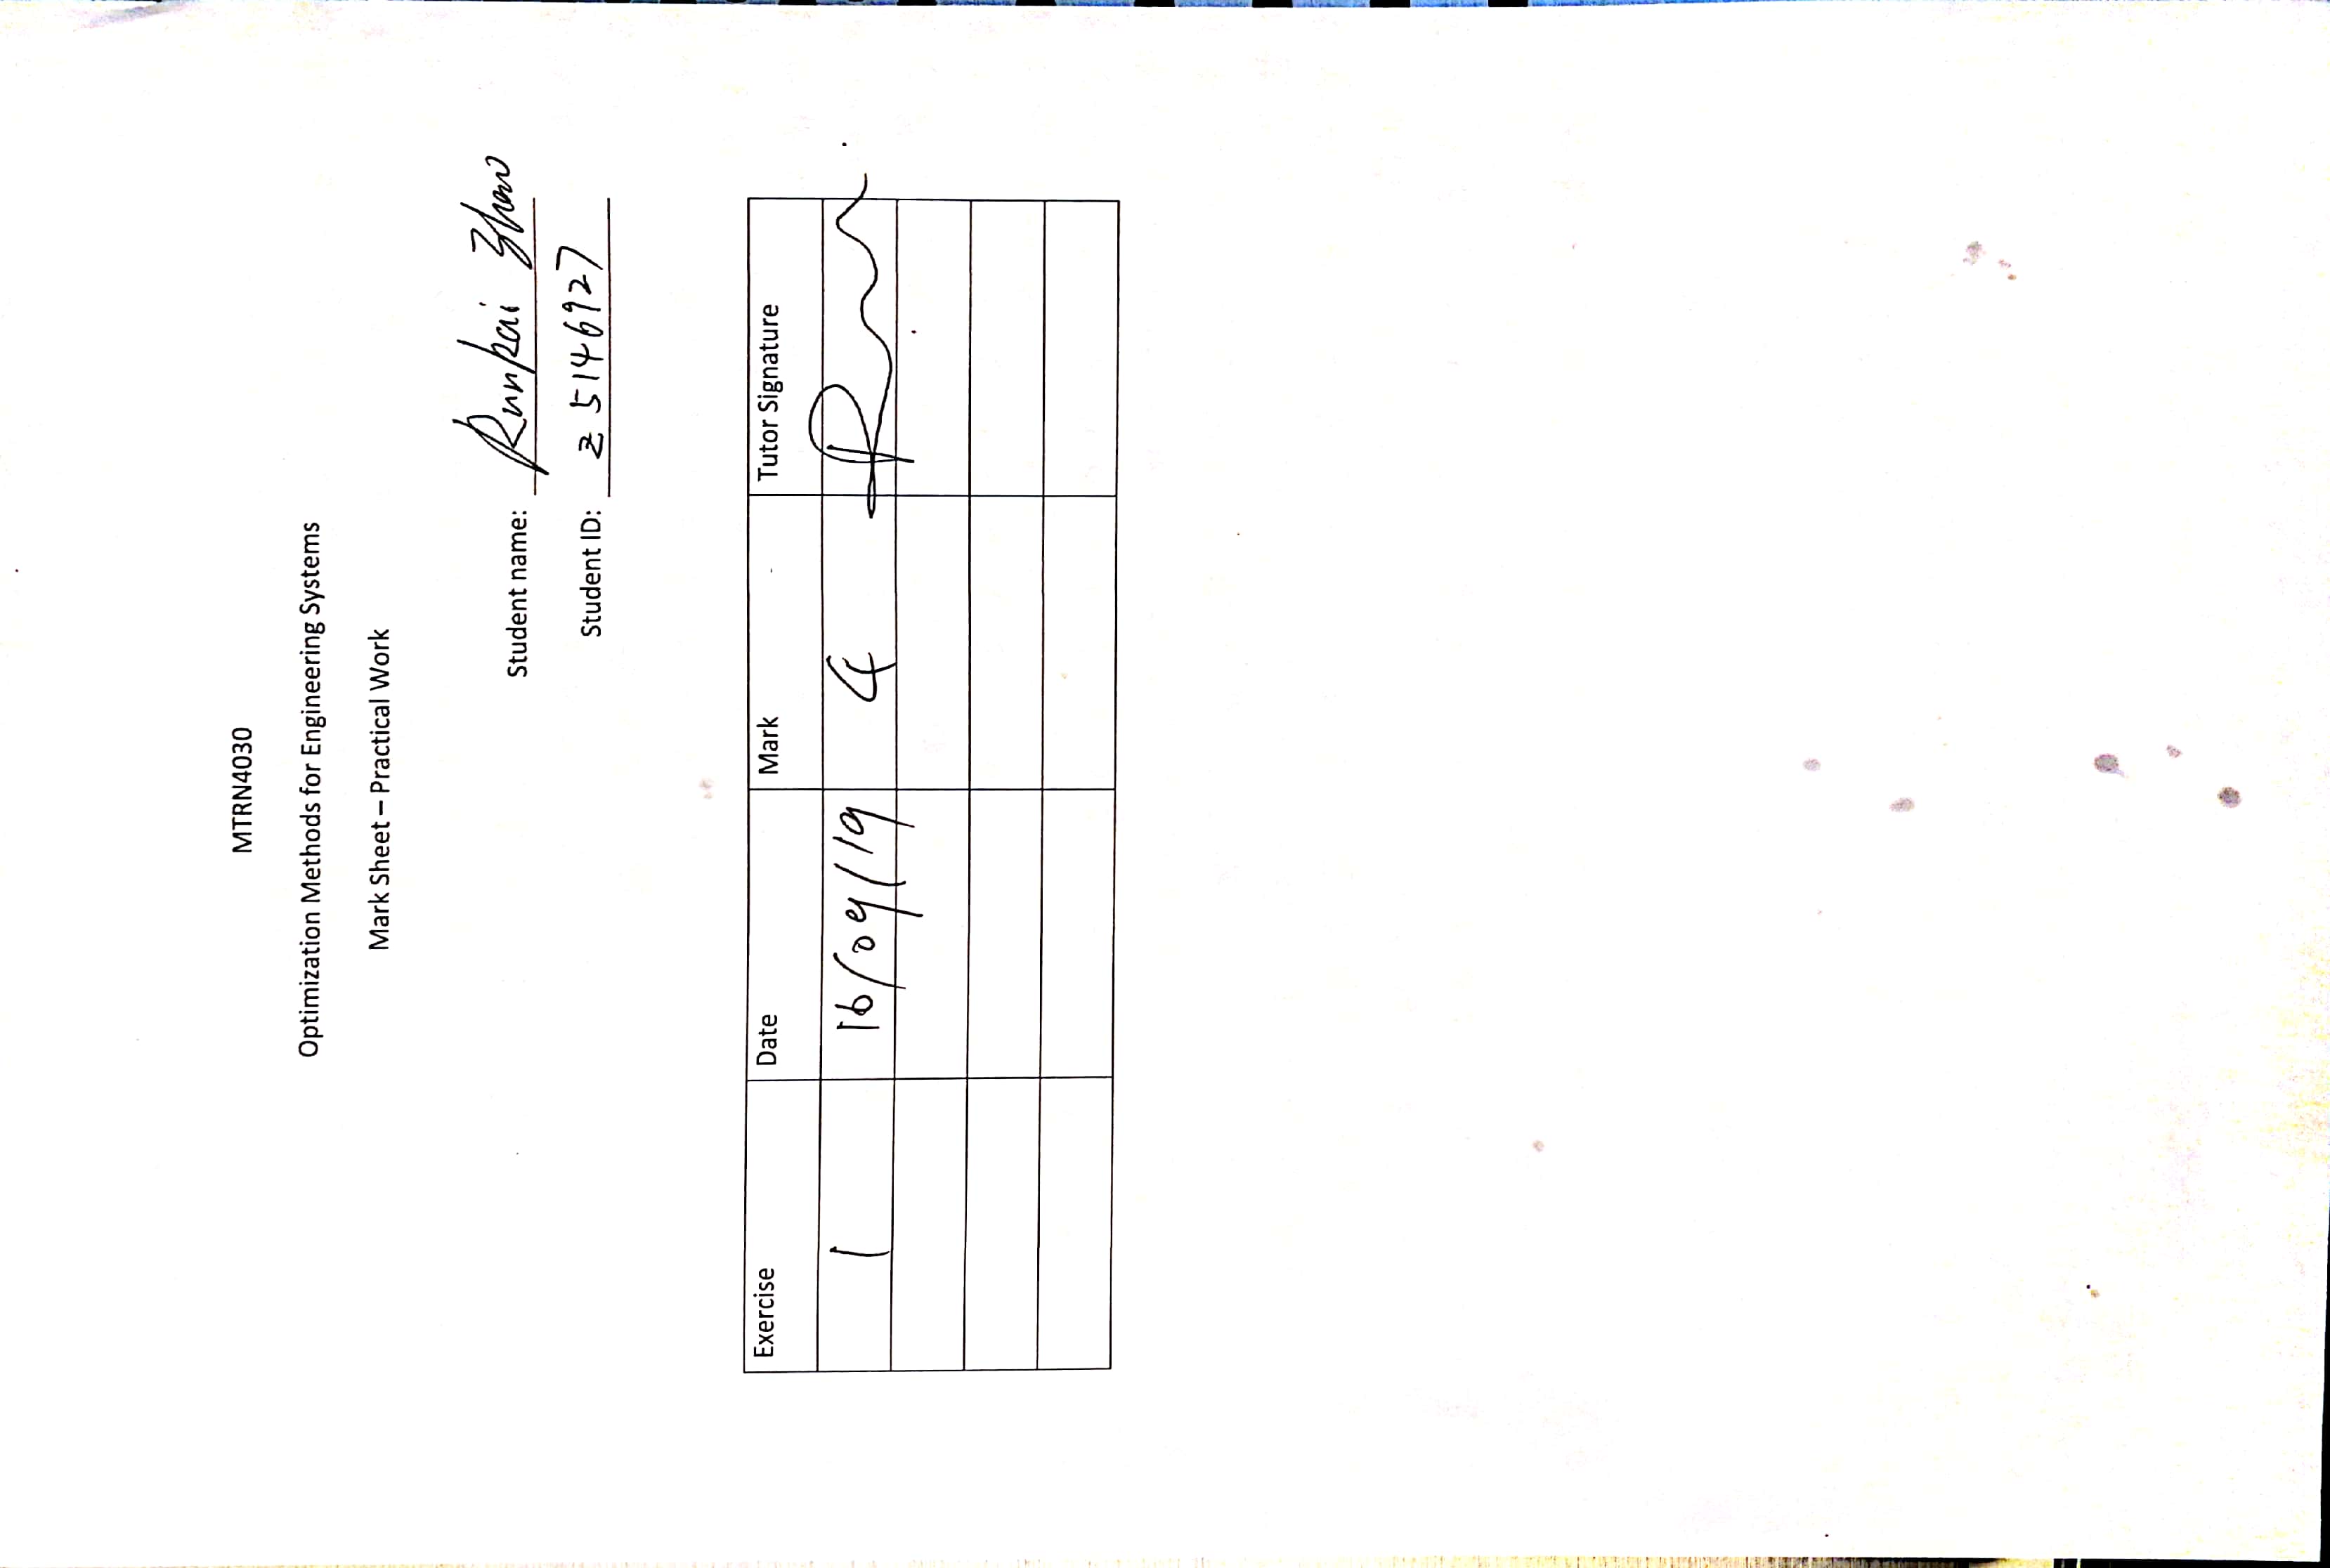 MTRN4030
Optimization Methods for Engineering Systems
Mark Sheet – Practical Work
Student name: Runkai Zhao
Student ID: z 5146927
Exercise Date Mark Tutor Signature
1 16/09/19 4